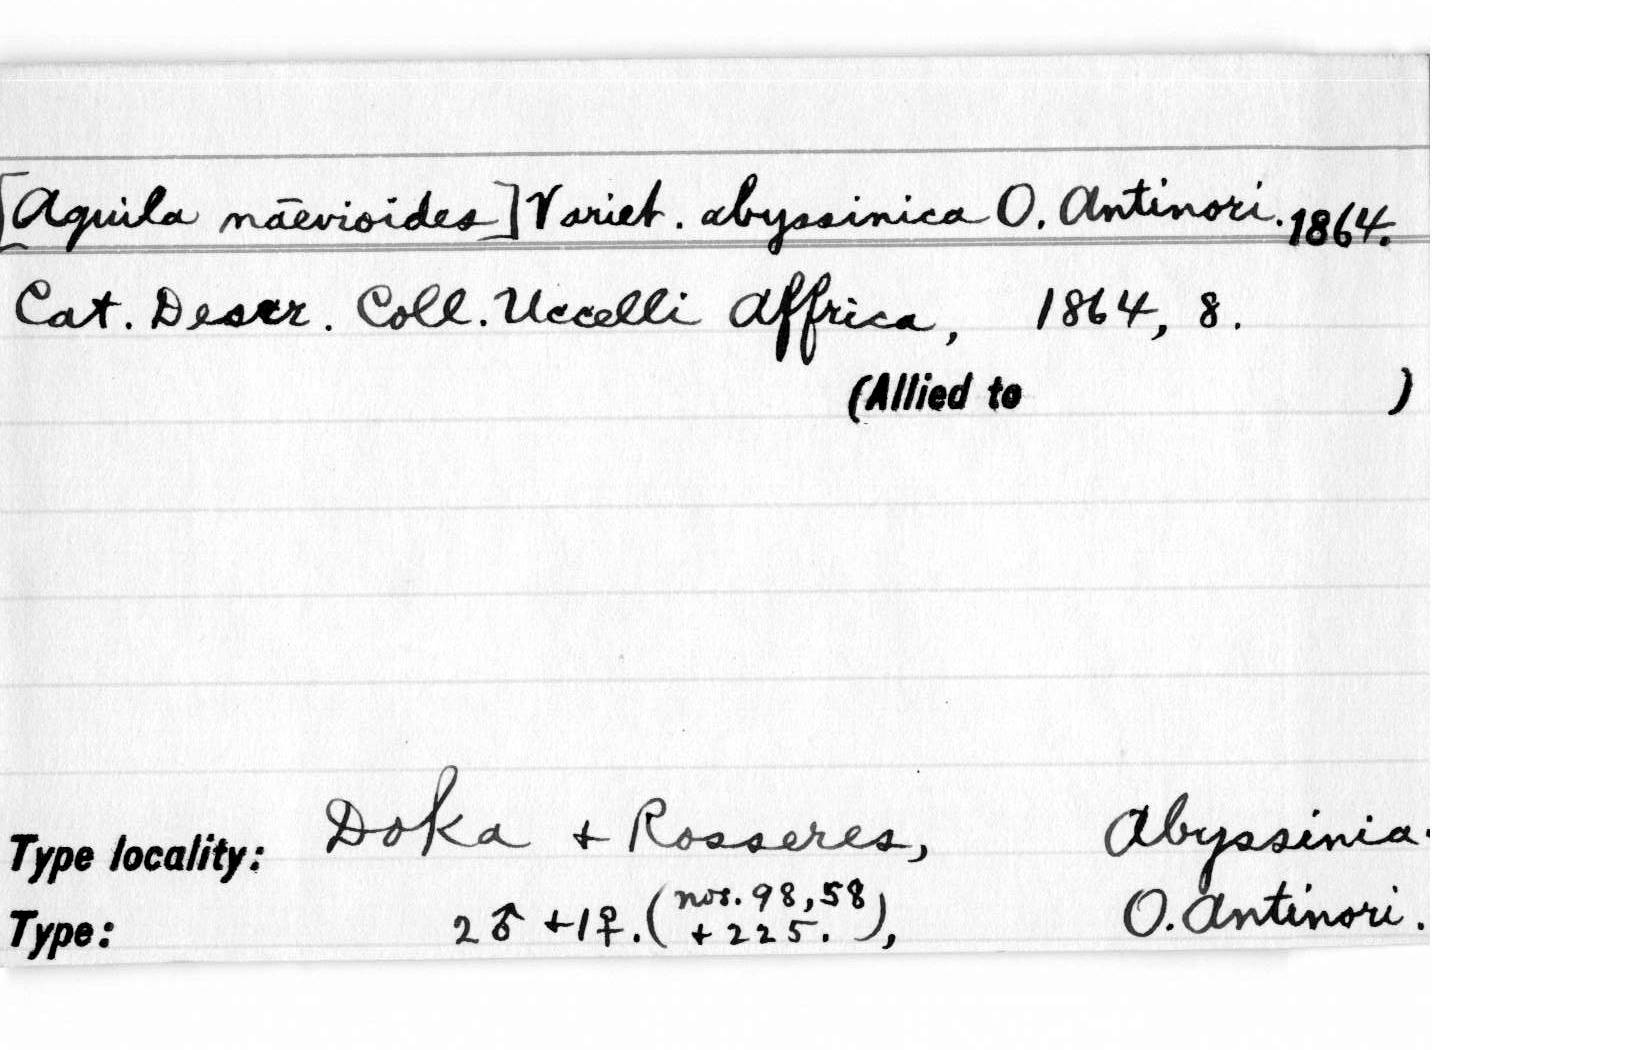 [Aquila nāevioides] Variet. abyssinica O. Antinori. 1864.
Cat. Descr. Coll. Uccelli Affrica, 1864, 8.
(Allied to )
Type locality: Doka + Rosseres, Abyssinia.
Type: 2♂ + 1♀. (nos. 98, 58 + 225.), O. Antinori.